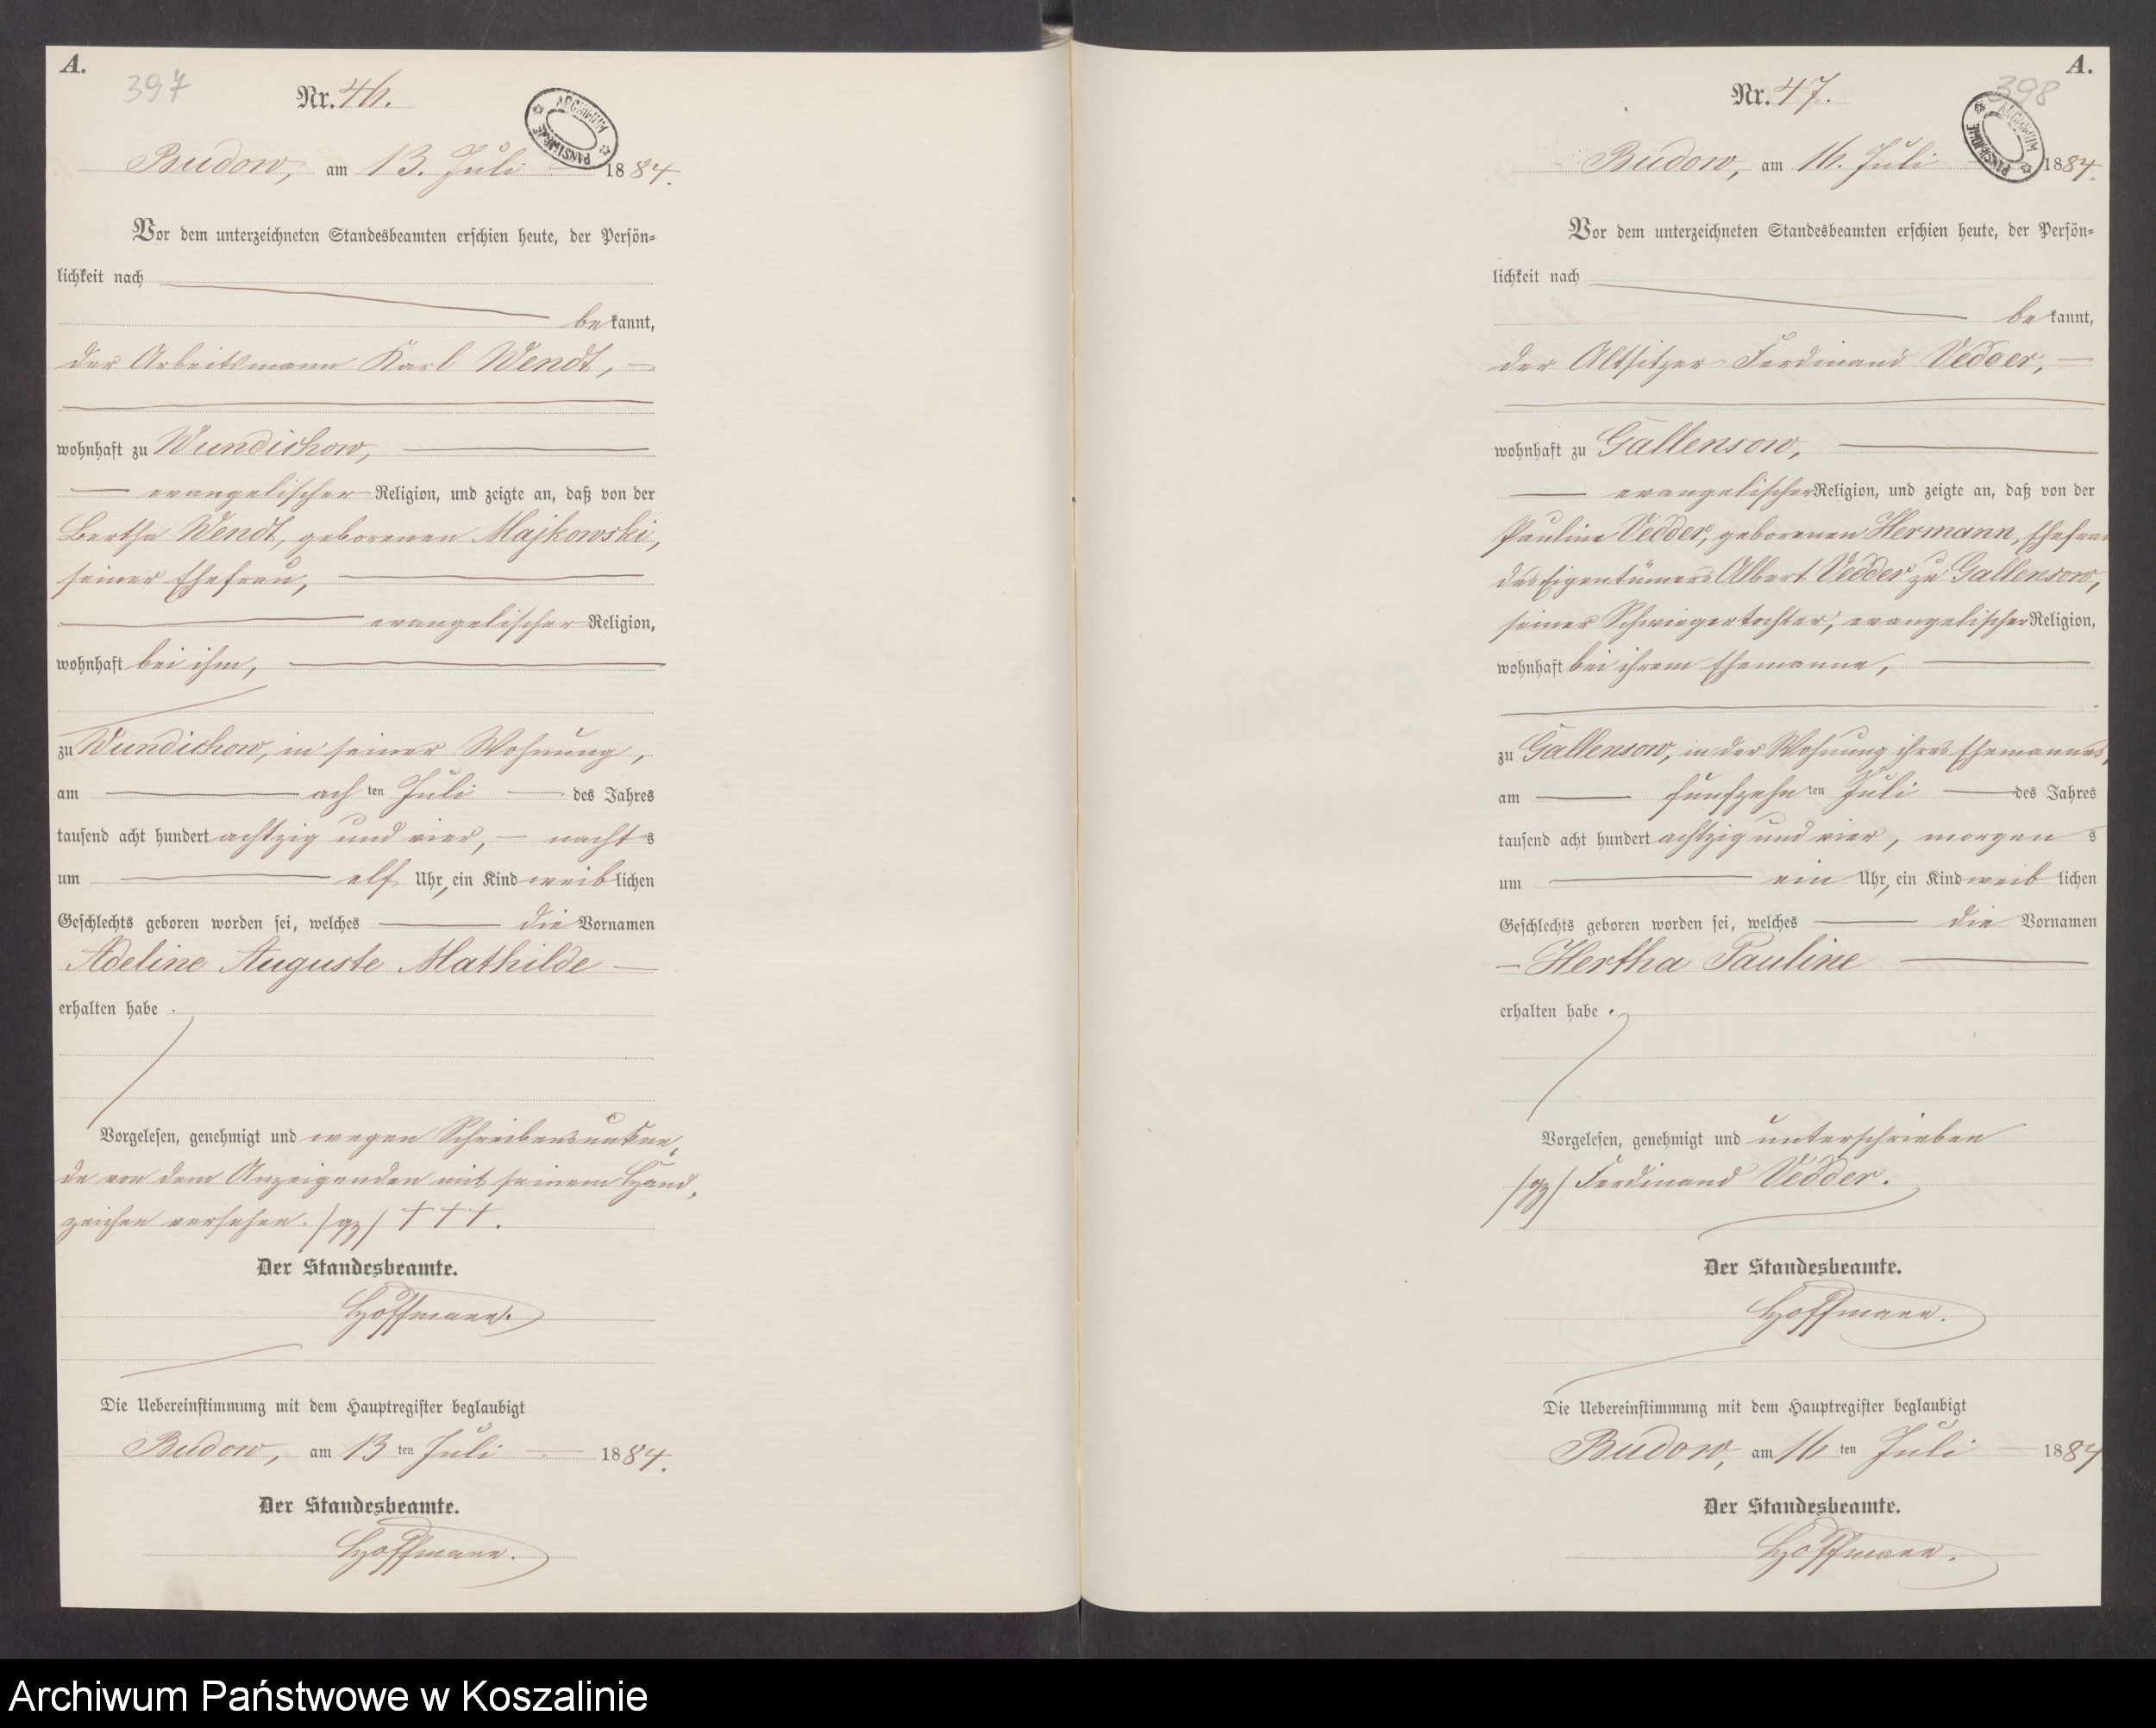 A.
397
Nr. 46.
ARCHIWUM PAŃSTWOWE
Budow, am 13. Juli 1884.
Vor dem unterzeichneten Standesbeamten erschien heute, der Persön=
lichkeit nach
bekannt,
der Arbeitsmann Karl Wendt,
wohnhaft zu Wundichow,
evangelischer Religion, und zeigte an, daß von der
Bertha Wendt, geborenen Majkowski,
seiner Ehefrau,
evangelischer Religion,
wohnhaft bei ihm,
zu Wundichow, in seiner Wohnung,
am achten Juli des Jahres
tausend acht hundert achtzig und vier, nachts
um elf Uhr, ein Kind weiblichen
Geschlechts geboren worden sei, welches die Vornamen
Adeline Auguste Mathilde
erhalten habe.
Vorgelesen, genehmigt und wegen Schreibensunkun,
de von dem Anzeigenden mit seinem Hand,
zeichen versehen. /gz/ +++.
Der Standesbeamte.
Hoffmann.
Die Uebereinstimmung mit dem Hauptregister beglaubigt
Budow, am 13ten Juli 1884.
Der Standesbeamte.
Hoffmann.
A.
398
Nr. 47.
ARCHIWUM PAŃSTWOWE
Budow, am 16. Juli 1884.
Vor dem unterzeichneten Standesbeamten erschien heute, der Persön=
lichkeit nach
bekannt,
der Altsitzer Ferdinand Vedder,
wohnhaft zu Gallensow,
evangelischer Religion, und zeigte an, daß von der
Pauline Vedder, geborenen Hermann, Ehefrau
des Eigentümers Albert Vedder zu Gallensow,
seiner Schwiegertochter, evangelischer Religion,
wohnhaft bei ihrem Ehemanne,
zu Gallensow, in der Wohnung ihres Ehemannes,
am fünfzehnten Juli des Jahres
tausend acht hundert achtzig und vier, morgens
um ein Uhr, ein Kind weiblichen
Geschlechts geboren worden sei, welches die Vornamen
Hertha Pauline
erhalten habe.
Vorgelesen, genehmigt und unterschrieben
/gz/ Ferdinand Vedder.
Der Standesbeamte.
Hoffmann.
Die Uebereinstimmung mit dem Hauptregister beglaubigt
Budow, am 16ten Juli 1884
Der Standesbeamte.
Hoffmann.
Archiwum Państwowe w Koszalinie